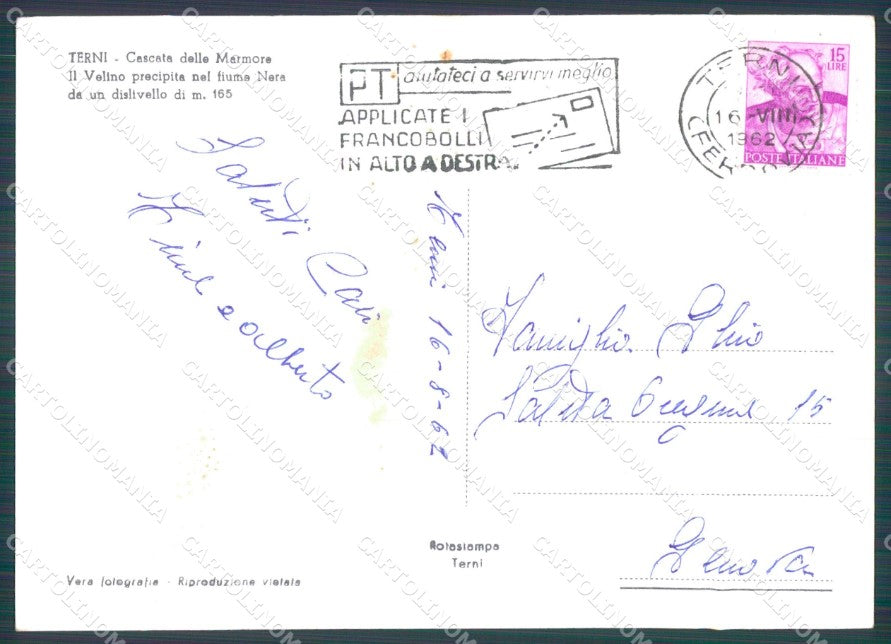 TERNI - Cascata delle Marmore
Il Velino precipita nel fiume Nera
da un dislivello di m. 165
PT aiutateci a servirvi meglio
APPLICATE I
FRANCOBOLLI
IN ALTO A DESTRA
TERNI
16-VIII
1962
15
LIRE
POSTE ITALIANE
Saluti Cari
e Alberto
Terni 16-8-62
Famiglia Ghio
Salita 15
Genova
Rotostampa
Terni
Vera fotografia - Riproduzione vietata
CARTOLINOMANIA